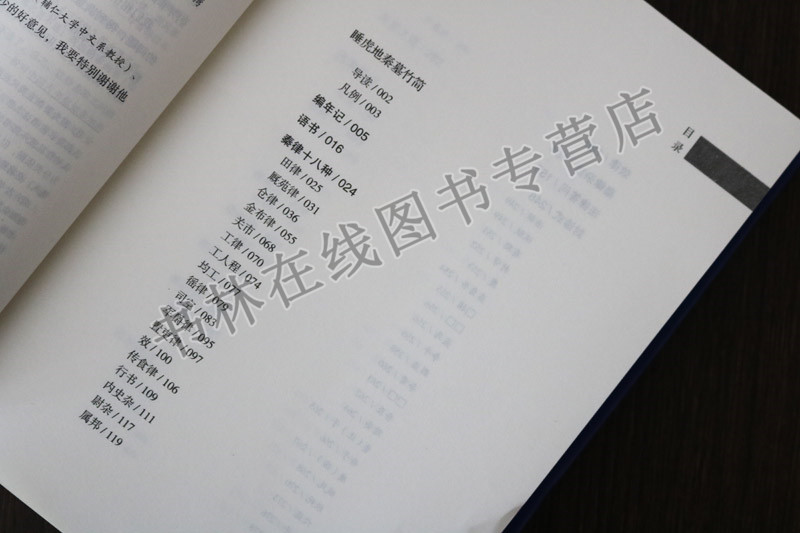 辅仁大学中文系教授）、
少的好意见，我要特别谢谢他
目录
睡虎地秦墓竹简
导读/002
凡例/003
编年记/005
语书/016
秦律十八种/024
田律/025
厩苑律/031
仓律/036
金布律/055
关市/068
工律/070
工人程/074
均工/077
徭律/079
司空/083
军爵律/095
置吏律/097
效/100
传食律/106
行书/109
内史杂/111
尉杂/117
属邦/119
书林在线图书专营店